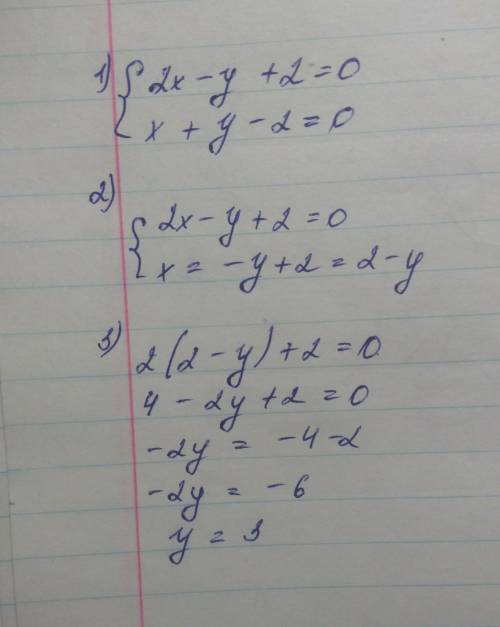 1) { 2x - y + 2 = 0
x + y - 2 = 0
2)
{ 2x - y + 2 = 0
x = -y + 2 = 2 - y
3)
2(2 - y) + 2 = 0
4 - 2y + 2 = 0
-2y = -4 - 2
-2y = -6
y = 3